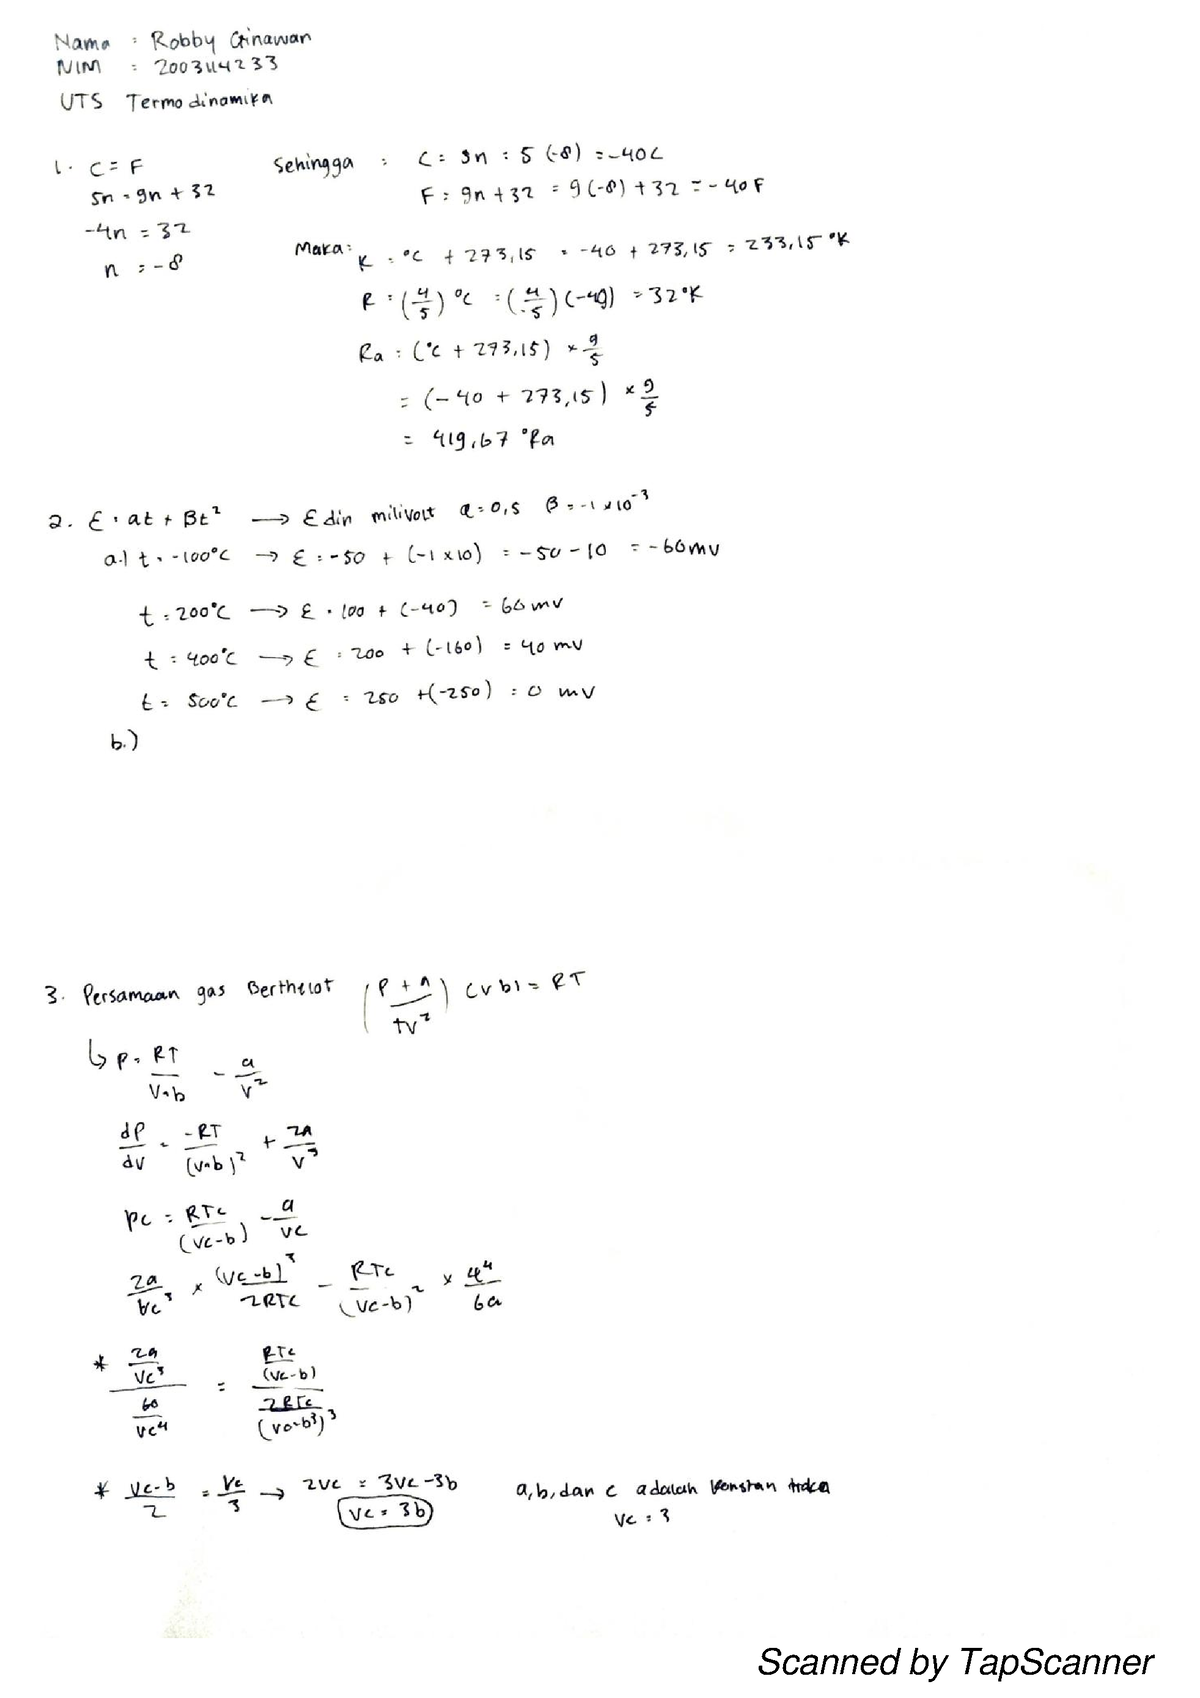 Nama : Robby Ginawan
NIM : 2003114233
UTS Termodinamika
1. C = F
5n = 9n + 32
-4n = 32
n = -8
Sehingga : C = 5n : 5 (-8) = -40C
F = 9n + 32 = 9(-8) + 32 = -40F
Maka: K = °C + 273,15 = -40 + 273,15 = 233,15 °K
R = (4/5) °C = (4/5) (-40) = 32°K
Ra : (°C + 273,15) × 9/5
= (-40 + 273,15) × 9/5
= 419,67 °Ra
2. ε = at + βt² → ε din milivolt a = 0,5 β = -1 × 10⁻³
a.) t = -100°C → ε = -50 + (-1 × 10) = -50 - 10 = -60 mv
t = 200°C → ε = 100 + (-40) = 60 mv
t = 400°C → ε = 200 + (-160) = 40 mv
t = 500°C → ε = 250 + (-250) = 0 mv
b.)
3. Persamaan gas Berthelot (P + a / tv²) (v b) = RT
↳ P = RT / V-b - a / v²
dP/dv = -RT / (v-b)² + 2a / v³
Pc = RTc / (Vc-b) - a / vc
2a / vc³ × (Vc-b)³ / 2RTc - RTc / (Vc-b)² × 4⁴ / 6a
* 2a / Vc³ / 60 / vc⁴ = RTc / (Vc-b) / 2RTc / (vo-b³)³
* Vc-b / 2 = Vc / 3 → 2Vc = 3Vc - 3b
Vc = 3b
a, b, dan c adalah konstan
Vc = 3
Scanned by TapScanner